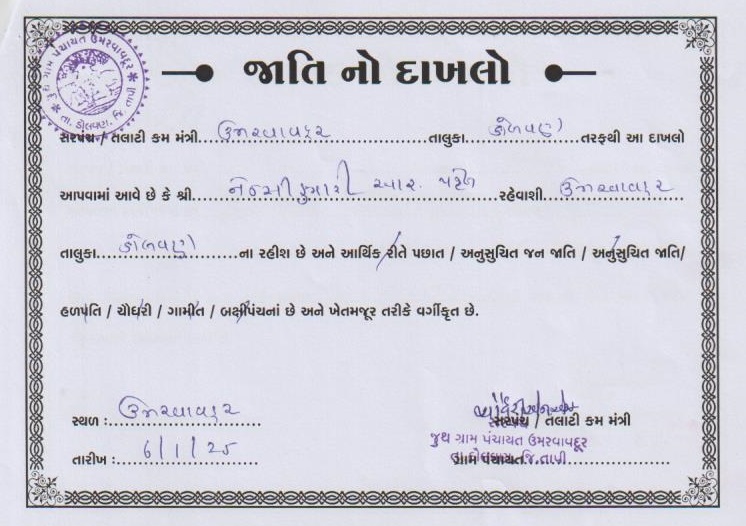 જુથ ગ્રામ પંચાયત ઉમરવાવદૂર
તા. ડોલવણ, જિ. તાપી
જાતિ નો દાખલો
સરપંચ / તલાટી કમ મંત્રી ઉમરવાવદુર તાલુકા ડોલવણ તરફથી આ દાખલો
આપવામાં આવે છે કે શ્રી આર. પટેલ રહેવાશી ઉમરવાવદુર
તાલુકા ડોલવણ ના રહીશ છે અને આર્થિક રીતે પછાત / અનુસુચિત જન જાતિ / અનુસુચિત જાતિ/
હળપતિ / ચૌધરી / ગામીત / બક્ષીપંચનાં છે અને ખેતમજૂર તરીકે વર્ગીકૃત છે.
સ્થળ : ઉમરવાવદુર
સરપંચ / તલાટી કમ મંત્રી
જુથ ગ્રામ પંચાયત ઉમરવાવદૂર
તારીખ : 6/1/25
ગ્રામ પંચાયત
તા.ડોલવણ, જિ.તાપી